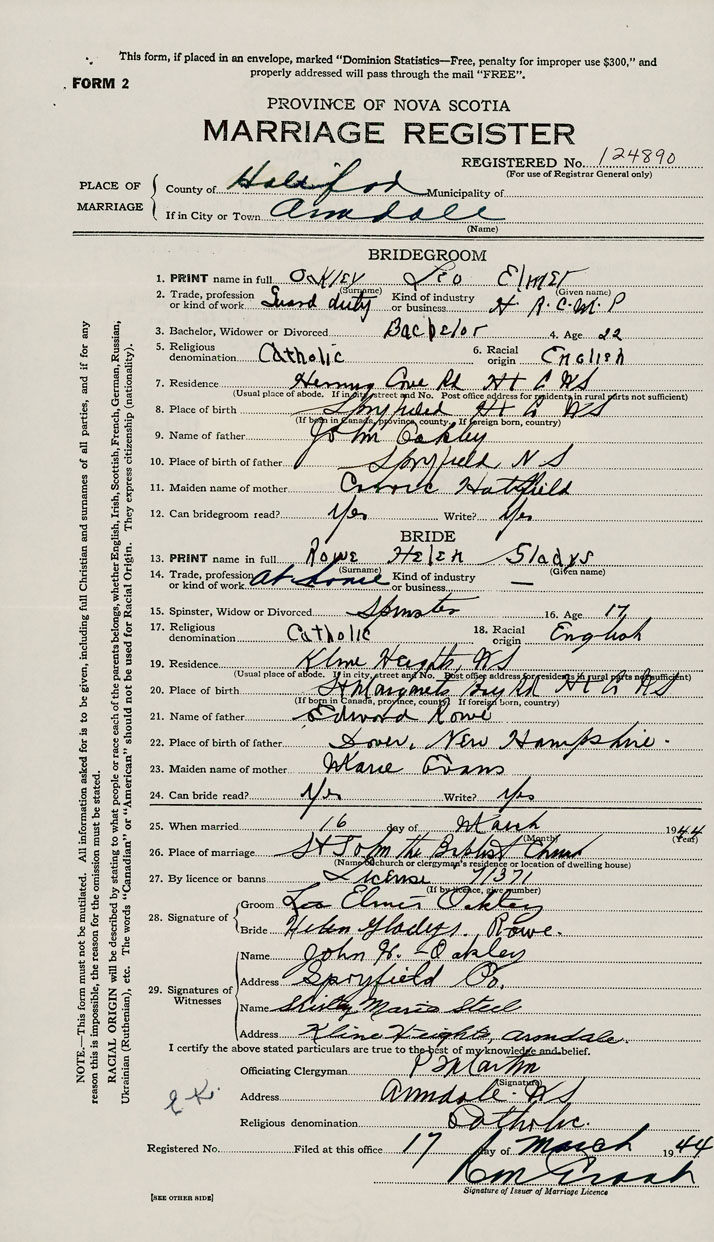 This form, if placed in an envelope, marked "Dominion Statistics—Free, penalty for improper use $300," and
properly addressed will pass through the mail "FREE".
FORM 2
PROVINCE OF NOVA SCOTIA
MARRIAGE REGISTER
REGISTERED No. 124890
(For use of Registrar General only)
PLACE OF MARRIAGE
County of Halifax Municipality of
If in City or Town Armdale
(Name)
BRIDEGROOM
1. PRINT name in full Oakley Leo Elmer
(Surname) (Given name)
2. Trade, profession or kind of work Guard duty Kind of industry or business H R.C.M.P
3. Bachelor, Widower or Divorced Bachelor 4. Age 22
5. Religious denomination Catholic 6. Racial origin English
7. Residence Herring Cove Rd Hx C NS
(Usual place of abode. If in city, street and No. Post office address for residents in rural parts not sufficient)
8. Place of birth Spryfield Hx Co NS
(If born in Canada, province, county. If foreign born, country)
9. Name of father John Oakley
10. Place of birth of father Spryfield, N S
11. Maiden name of mother Hatfield
12. Can bridegroom read? Yes Write? Yes
BRIDE
13. PRINT name in full Rowe Helen Gladys
(Surname) (Given name)
14. Trade, profession or kind of work At home Kind of industry or business —
15. Spinster, Widow or Divorced Spinster 16. Age 17
17. Religious denomination Catholic 18. Racial origin English
19. Residence Kline Heights, NS
(Usual place of abode. If in city, street and No. Post office address for residents in rural parts not sufficient)
20. Place of birth St Margarets Bay Rd Hx Co NS
(If born in Canada, province, county. If foreign born, country)
21. Name of father Edward Rowe
22. Place of birth of father Dover, New Hampshire.
23. Maiden name of mother Marie Evans
24. Can bride read? Yes Write? Yes
25. When married 16 day of March 1944
(Month) (Year)
26. Place of marriage St John the Baptist Church
(Name of church or clergyman's residence or location of dwelling house)
27. By licence or banns License 71371
(If by licence, give number)
28. Signature of
Groom Leo Elmer Oakley
Bride Helen Gladys. Rowe.
29. Signatures of Witnesses
Name John W. Oakley
Address Spryfield Co.
Name Shirley Marie Steel
Address Kline Heights, Armdale.
I certify the above stated particulars are true to the best of my knowledge and belief.
Officiating Clergyman P Martin
(Signature)
Address Armdale. NS
Religious denomination Catholic.
Registered No. Filed at this office 17 day of March 1944
Signature of Issuer of Marriage Licence
[SEE OTHER SIDE]
NOTE.—This form must not be mutilated. All information asked for is to be given, including full Christian and surnames of all parties, and if for any
reason this is impossible, the reason for the omission must be stated.
RACIAL ORIGIN will be described by stating to what people or race each of the parents belongs, whether English, Irish, Scottish, French, German, Russian,
Ukrainian (Ruthenian), etc. The words "Canadian" or "American" should not be used for Racial Origin. They express citizenship (nationality).